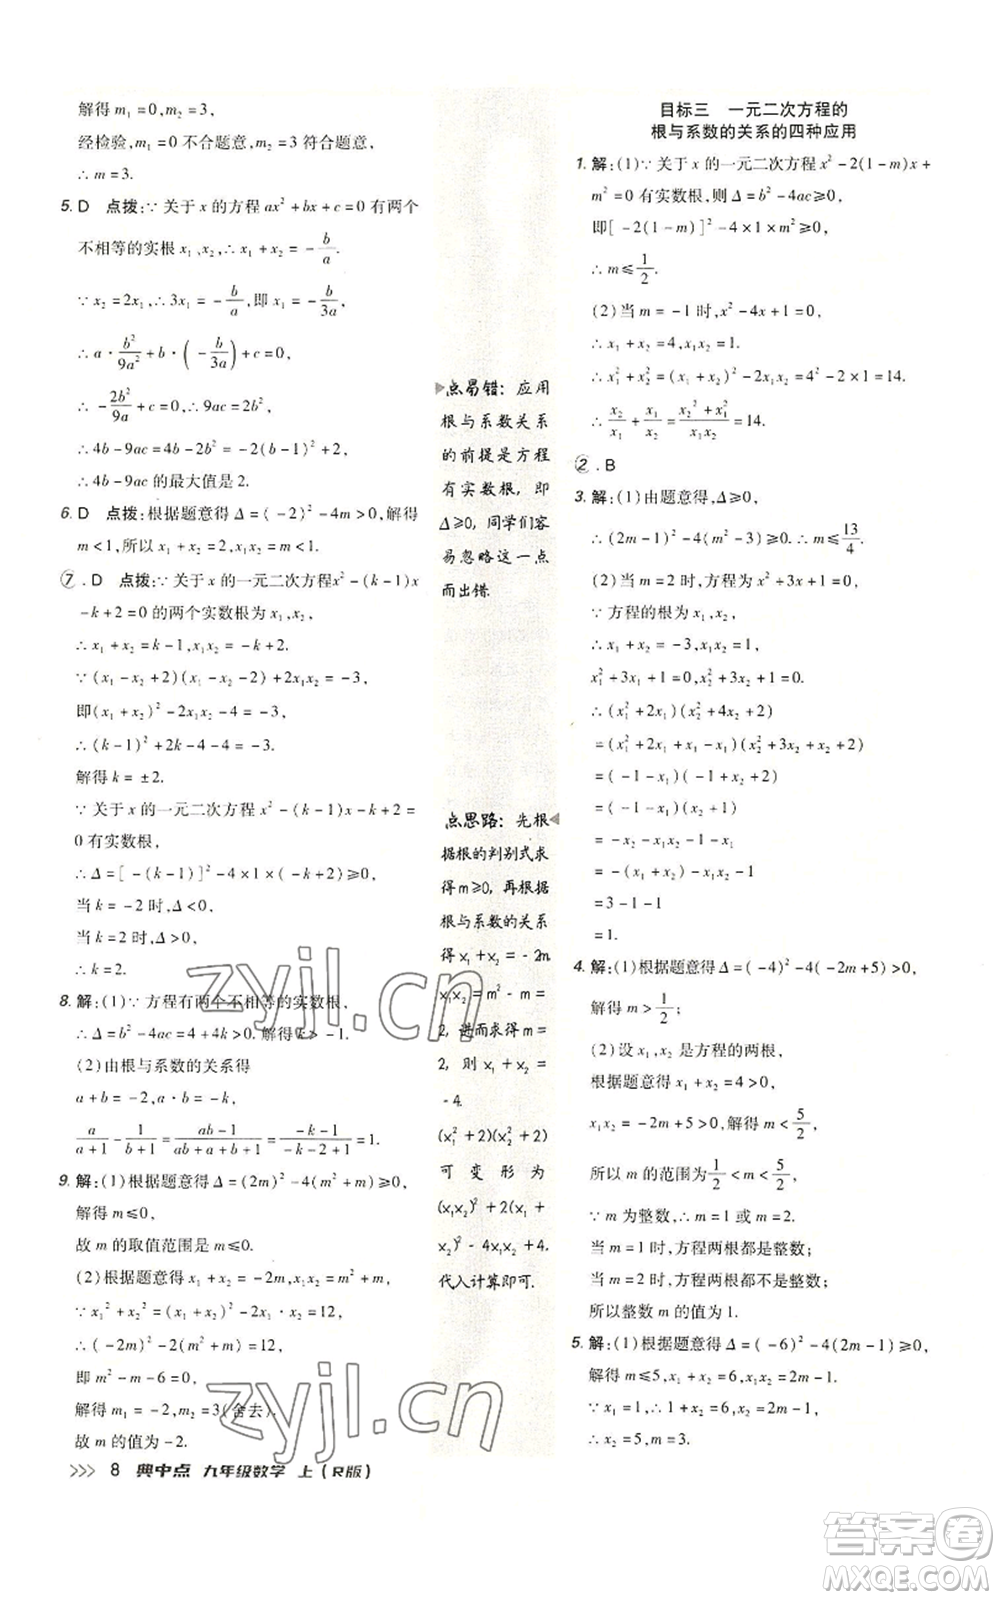 解得 m₁=0,m₂=3,
经检验,m=0 不合题意,m=3 符合题意,
∴m=3.
5. D 点拨:∵关于 x 的方程 ax²+bx+c=0 有两个
不相等的实根 x₁、x₂,∴x₁+x₂=-b/a.
∵x₂=2x₁,∴3x₁=-b/a,即 x₁=-b/3a,
∴a·b²/9a²+b·(-b/3a)+c=0,
∴-2b²/9a+c=0,∴9ac=2b²,
∴4b-9ac=4b-2b²=-2(b-1)²+2.
∴4b-9ac 的最大值是 2.
6. D 点拨:根据题意得 Δ=(-2)²-4m>0,解得
m<1,所以 x₁+x₂=2,x₁x₂=m<1.
⑦. D 点拨:∵关于 x 的一元二次方程x²-(k-1)x
-k+2=0 的两个实数根为 x₁,x₂,
∴x₁+x₂=k-1,x₁x₂=-k+2.
∵(x₁-x₂+2)(x₁-x₂-2)+2x₁x₂=-3,
即(x₁+x₂)²-2x₁x₂-4=-3,
∴(k-1)²+2k-4-4=-3.
解得 k=±2.
∵关于 x 的一元二次方程 x²-(k-1)x-k+2=
0 有实数根,
∴Δ=[-(k-1)]²-4×1×(-k+2)≥0,
当 k=-2 时,Δ<0,
当 k=2 时,Δ>0,
∴k=2.
8. 解:(1)∵方程有两个不相等的实数根,
∴Δ=b²-4ac=4+4k>0.解得k>-1.
(2)由根与系数的关系得
a+b=-2,ab=-k,
a/(a+1)-1/(b+1)=(ab-1)/(ab+a+b+1)=(-k-1)/(-k-2+1)=1.
9. 解:(1)根据题意得 Δ=(2m)²-4(m²+m)≥0,
解得 m≤0.
故 m 的取值范围是 m≤0.
(2)根据题意得 x₁+x₂=-2m,x₁x₂=m²+m,
∵x₁²+x₂²=(x₁+x₂)²-2x₁x₂=12,
∴(-2m)²-2(m²+m)=12,
即 m²-m-6=0,
解得 m₁=-2,m₂=3(舍去).
故 m 的值为-2.
>>> 8 典中点 九年级数学 上(R版)
点易错:应用
根与系数关系
的前提是方程
有实数根,即
Δ≥0,同学们容
易忽略这一点
而出错.
点思路:先根
据根的判别式求
得 m≥0,再根据
根与系数的关系
得 x₁+x₂=-2m
x₁x₂=m²-m=
2,进而求得m=
2,则 x₁+x₂=
-4.
(x₁²+2)(x₂²+2)
可变形为
(x₁x₂)²+2(x₁+
x₂)²-4x₁x₂+4.
代入计算即可.
目标三 一元二次方程的
根与系数的关系的四种应用
1. 解:(1)∵关于 x 的一元二次方程 x²-2(1-m)x+
m²=0 有实数根,则 Δ=b²-4ac≥0,
即[-2(1-m)]²-4×1×m²≥0,
∴m≤1/2.
(2)当 m=-1 时,x²-4x+1=0,
∴x₁+x₂=4,x₁x₂=1.
∴x₁²+x₂²=(x₁+x₂)²-2x₁x₂=4²-2=14.
∴x₂/x₁+x₁/x₂=(x₂²+x₁²)/x₁x₂=14.
②. B
3. 解:(1)由题意得,Δ≥0,
∴(2m-1)²-4(m²-3)≥0.∴m≤13/4.
(2)当 m=2 时,方程为 x²+3x+1=0,
∵方程的根为 x₁,x₂,
∴x₁+x₂=-3,x₁x₂=1,
x₁²+3x₁+1=0,x₂²+3x₂+1=0,
∴(x₁²+2x₁)(x₂²+4x₂+2)
=(x₁²+2x₁+x₁-x₁)(x₂²+3x₂+x₂+2)
=(-1-x₁)(-1+x₂+2)
=(-1-x₁)(x₂+1)
=-x₂-x₁x₂-1-x₁
=-(x₁+x₂)-x₁x₂-1
=3-1-1
=1.
4. 解:(1)根据题意得Δ=(-4)²-4(-2m+5)>0,
解得 m>1/2;
(2)设 x₁,x₂ 是方程的两根,
根据题意得 x₁+x₂=4>0,
x₁x₂=-2m+5>0,解得 m<5/2,
所以 m 的范围为1/2<m<5/2.
∵m 为整数,∴m=1 或 m=2.
当 m=1 时,方程两根都是整数;
当 m=2 时,方程两根都不是整数;
所以整数 m 的值为 1.
5. 解:(1)根据题意得 Δ=(-6)²-4(2m-1)≥0,
解得 m≤5,x₁+x₂=6,x₁x₂=2m-1.
∵x₁=1,∴1+x₂=6,x₂=2m-1,
∴x₂=5,m=3.
zyjl.cn
zyjl.cn
答案圈
MXQE.COM